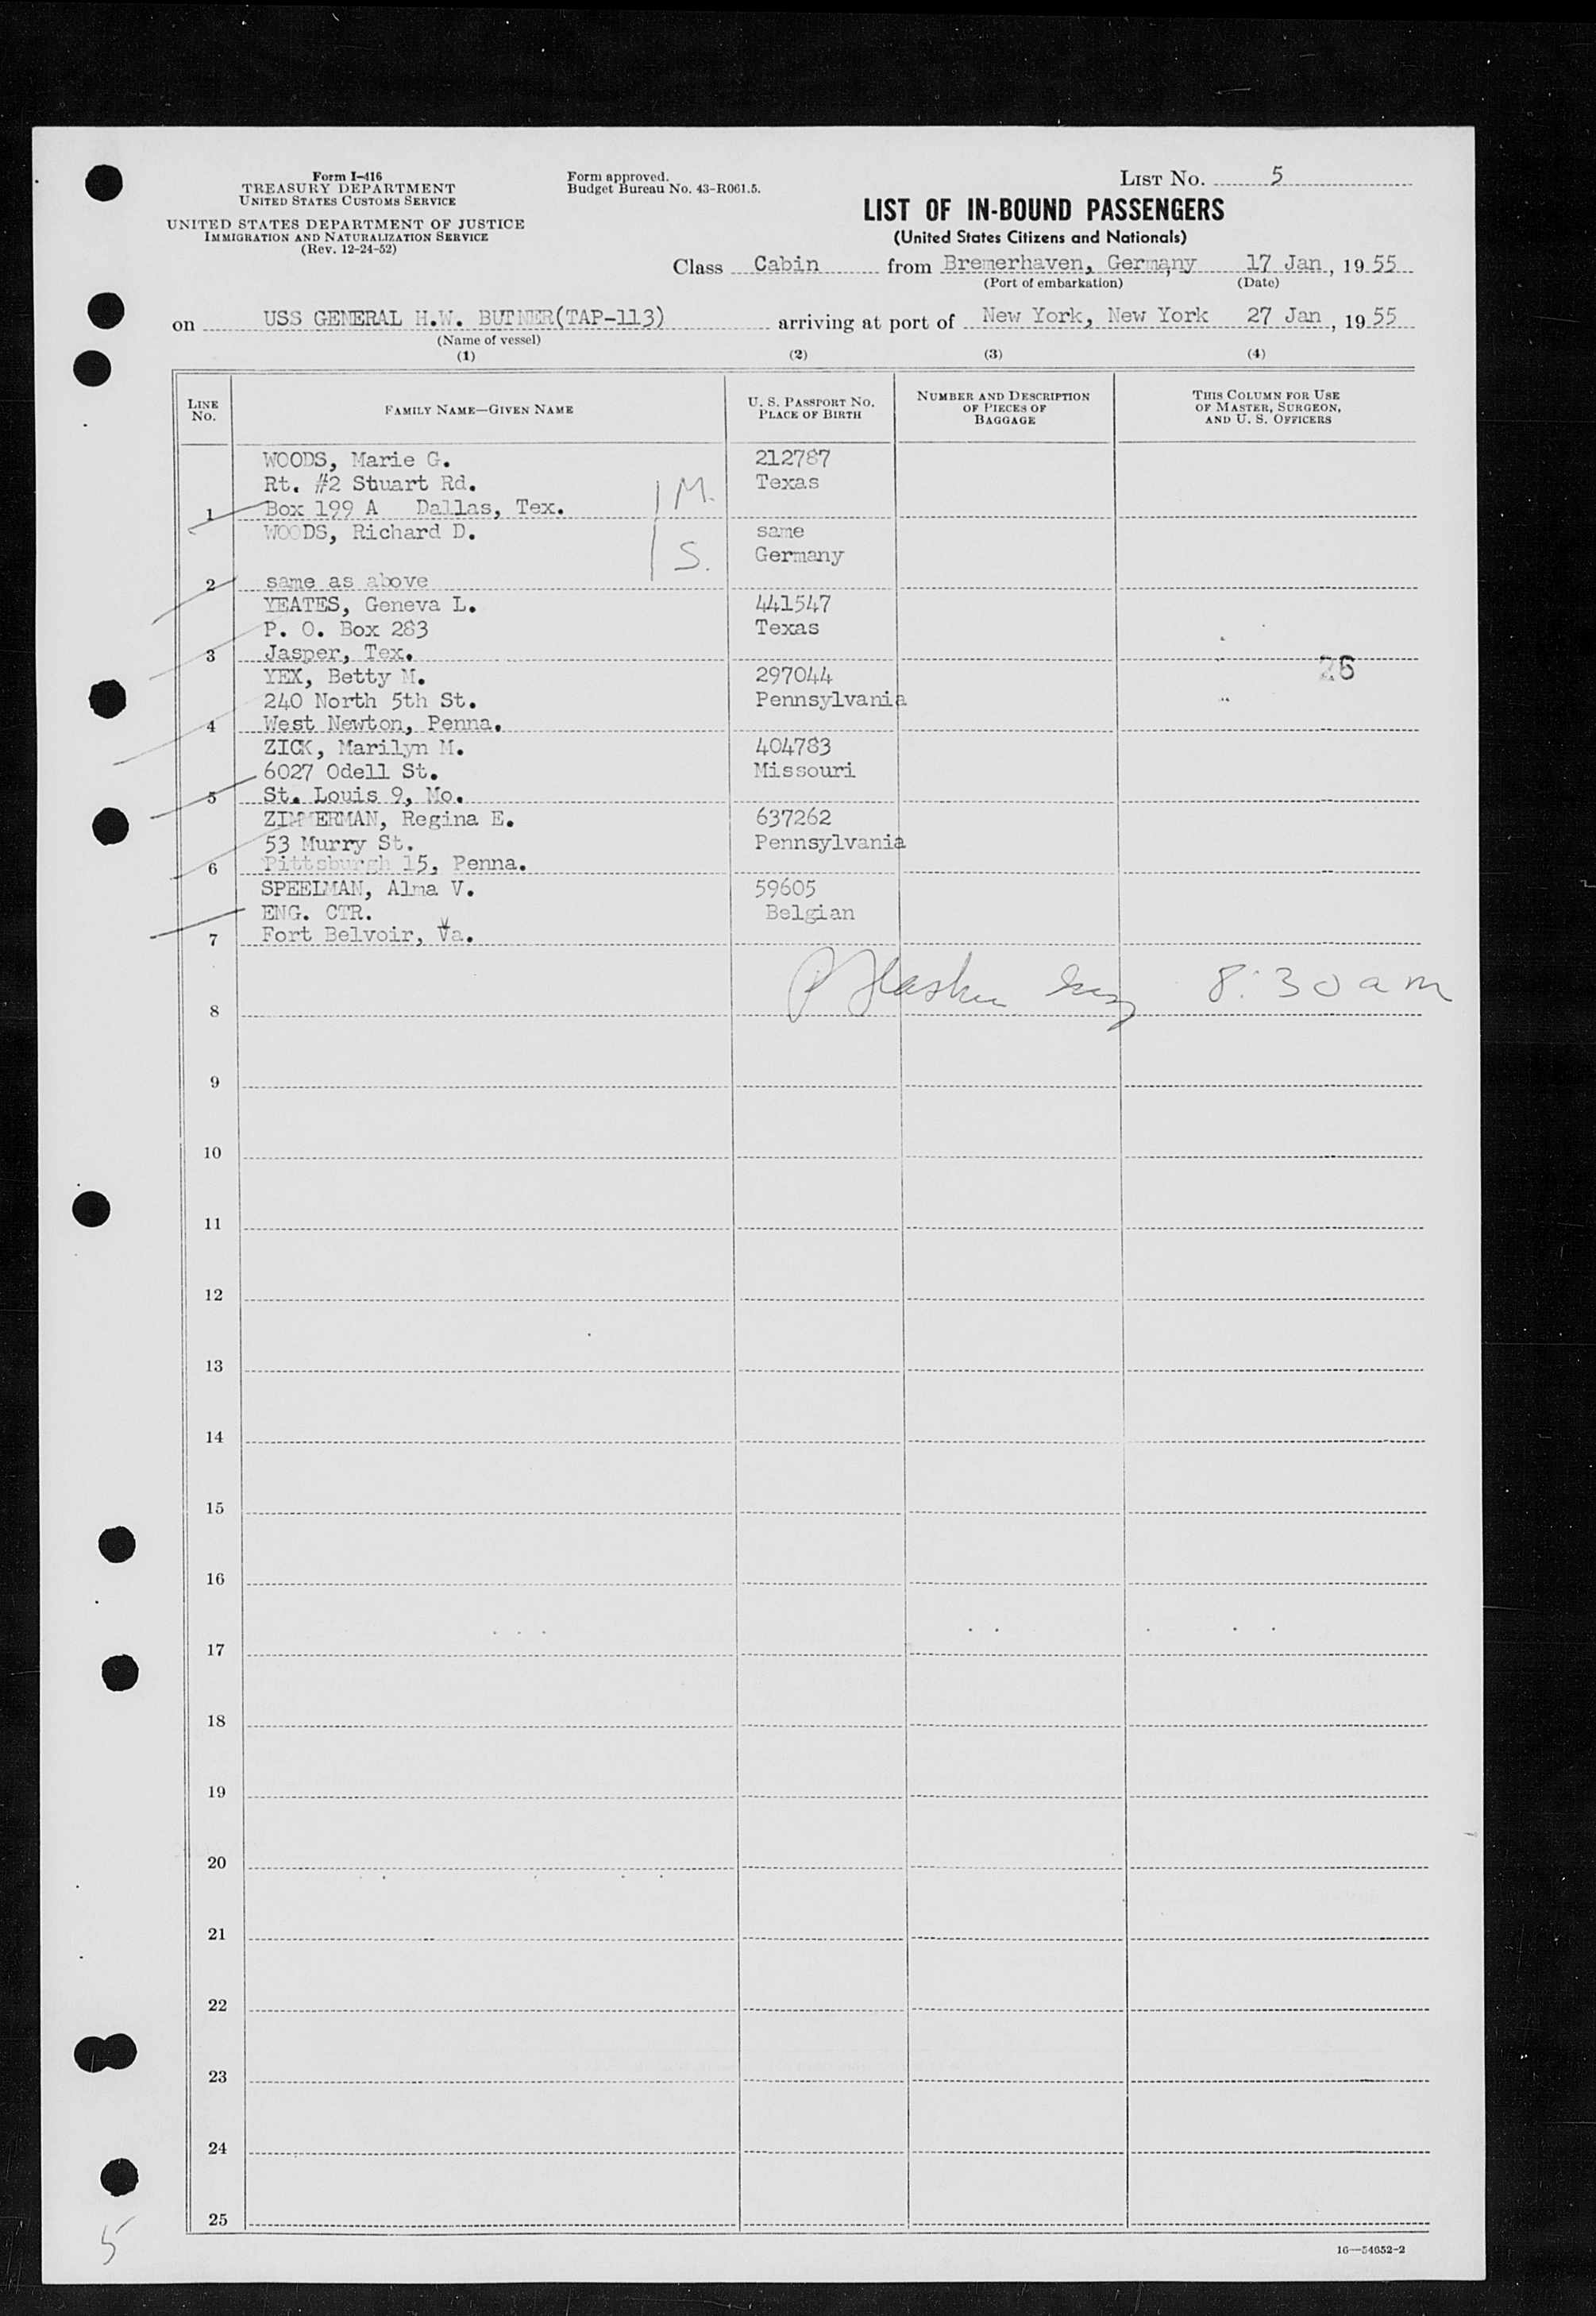 Form I-416
TREASURY DEPARTMENT
UNITED STATES CUSTOMS SERVICE
UNITED STATES DEPARTMENT OF JUSTICE
IMMIGRATION AND NATURALIZATION SERVICE
(Rev. 12-24-52)
Form approved.
Budget Bureau No. 43-R061.5.
LIST No. 5
LIST OF IN-BOUND PASSENGERS
(United States Citizens and Nationals)
Class Cabin from Bremerhaven, Germany 17 Jan, 1955
(Port of embarkation) (Date)
on USS GENERAL H.W. BUTNER(TAP-113) arriving at port of New York, New York 27 Jan, 1955
(Name of vessel)
(1) (2) (3) (4)
LINE No.
FAMILY NAME—GIVEN NAME
U. S. PASSPORT NO.
PLACE OF BIRTH
NUMBER AND DESCRIPTION
OF PIECES OF
BAGGAGE
THIS COLUMN FOR USE
OF MASTER, SURGEON,
AND U. S. OFFICERS
WOODS, Marie G. 212787
Rt. #2 Stuart Rd. M. Texas
1 Box 199 A Dallas, Tex.
WOODS, Richard D. same
S. Germany
2 same as above
YEATES, Geneva L. 441547
P. O. Box 283 Texas
3 Jasper, Tex.
YEX, Betty M. 297044 26
240 North 5th St. Pennsylvania
4 West Newton, Penna.
ZICK, Marilyn M. 404783
6027 Odell St. Missouri
5 St. Louis 9, Mo.
ZIMMERMAN, Regina E. 637262
53 Murry St. Pennsylvania
6 Pittsburgh 15, Penna.
SPEELMAN, Alma V. 59605
ENG. CTR. Belgian
7 Fort Belvoir, Va.
8:30 am
8
9
10
11
12
13
14
15
16
17
18
19
20
21
22
23
24
25
5
16—54652-2